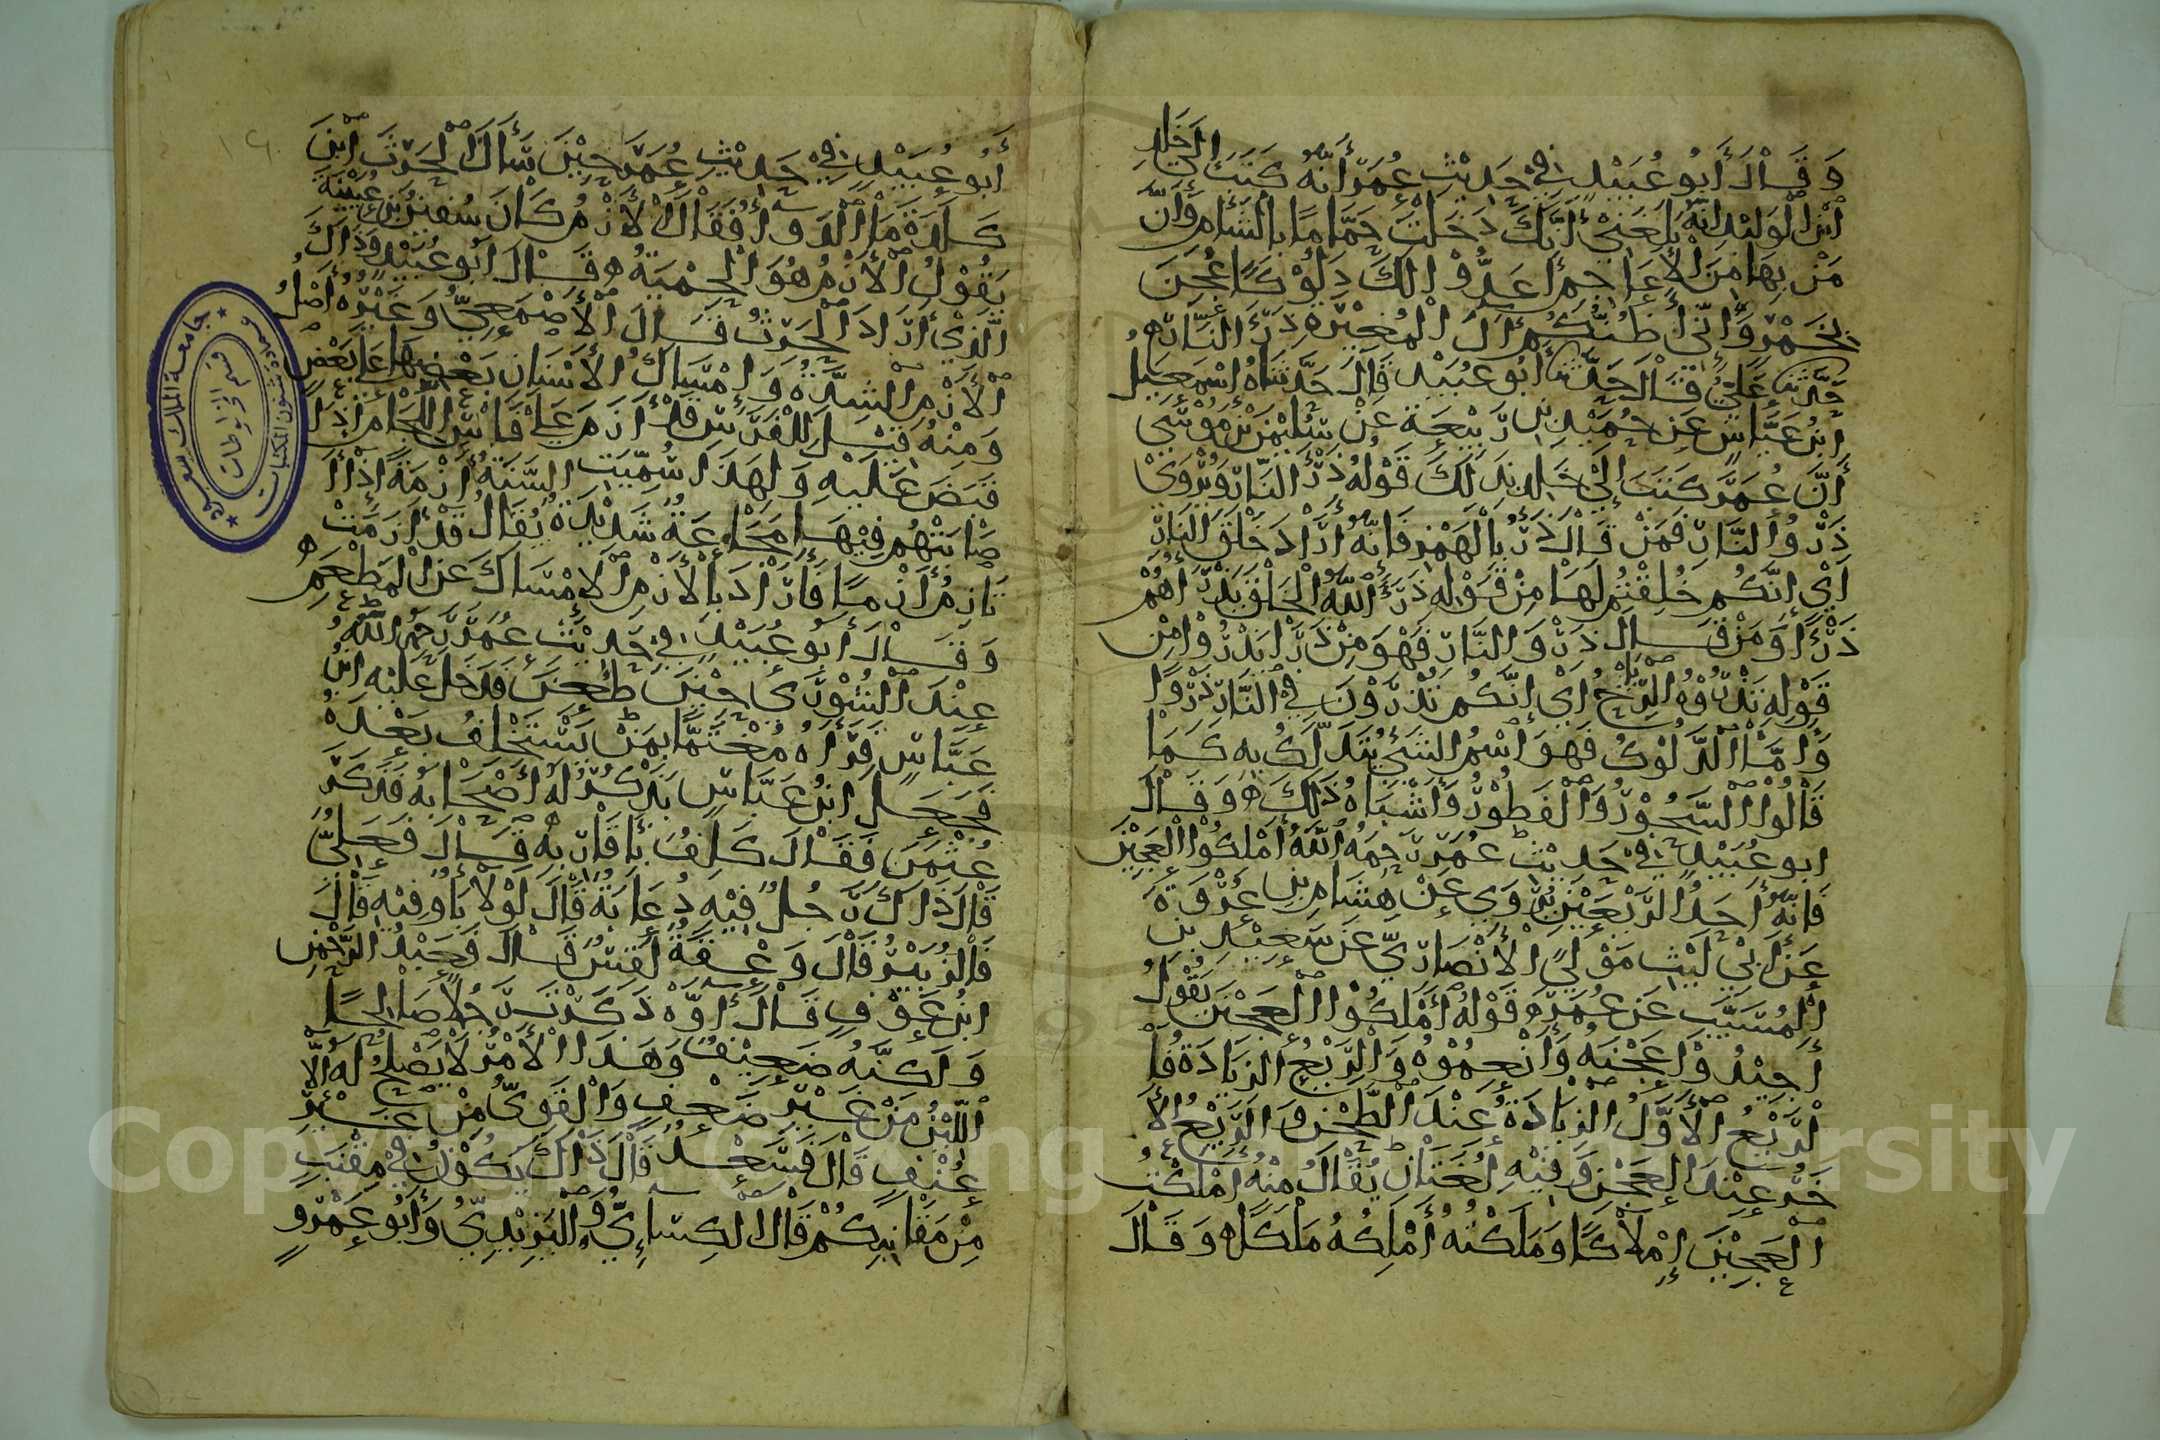 وَقَالَ أَبُو عُبَيْدٍ فِي حَدِيْثِ عُمَرَ أَنَّهُ كَتَبَ إِلَى خَالِدِ
ابْنِ الْوَلِيْدِ اِنَّهُ بَلَغَنِيْ أَنَّكَ دَخَلْتَ حَمَّامًا بِالشَّامِ وَأَنَّ
مَنْ بِهَا مِنَ الْأَعَاجِمِ أَعَدُّوْا لَكَ دَلُوْكًا عُجِنَ
بِخَمْرٍ وَإِنِّي أَظُنُّكُمْ آلَ الْمُغِيْرَةِ ذَرْءَ النَّارِ ه
حَدَّثَنَا عَلِيٌّ قَالَ حَدَّثَنَا أَبُو عُبَيْدٍ قَالَ حَدَّثَنَاهُ إِسْمَعِيلُ
ابْنُ عَيَّاشٍ عَنْ حُمَيْدِ بْنِ رَبِيْعَةَ عَنْ سُلَيْمَنَ بْنِ مُوْسَى
أَنَّ عُمَرَ كَتَبَ إِلَى خَالِدٍ بِذَلِكَ قَوْلُهُ ذَرْءَ النَّارِ وَيُرْوَى
ذَرْوُ النَّارِ فَمَنْ قَالَ ذَرْءُ بِالْهَمْزِ فَإِنَّهُ أَرَادَ خَلْقَ النَّارِ
اَيْ إِنَّكُمْ خُلِقْتُمْ لَهَا مِنْ قَوْلِهِ ذَرَأَ اللَّهُ الْخَلْقَ يَذْرَأُهُمْ
ذَرْءًا وَمَنْ قَالَ ذَرْوَ النَّارِ فَهُوَ مِنْ ذَرَا يَذْرُوْ مِنْ
قَوْلِهِ تَذْرُوْهُ الرِّيَاحُ اَيْ إِنَّكُمْ تُذْرَوْنَ فِي النَّارِ ذَرْوًا
وَاَمَّا الدَّلُوْكُ فَهُوَ اسْمُ الشَّيْءِ يُتَدَلَّكُ بِهِ كَمَا
قَالُوْا السَّحُوْرُ وَالْفَطُوْرُ وَأَشْبَاهُ ذَلِكَ ه وَقَالَ
ابو عُبَيْدٍ فِي حَدِيْثِ عُمَرَ رَحِمَهُ اللَّهُ أَمْلِكُوْا الْعَجِيْنَ
فَإِنَّهُ أَحَدُ الرَّيْعَيْنِ يُرْوَى عَنْ هِشَامِ بْنِ عُرْوَةَ
عَنْ أَبِيْ لَيْثٍ مَوْلَى الْأَنْصَارِيِّ عَنْ سَعِيْدِ بْنِ
الْمُسَيَّبِ عَنْ عُمَرَ ه قَوْلُهُ أَمْلِكُوْا الْعَجِيْنَ يَقُوْلُ
أَجِيْدُوْا عَجْنَهُ وَأَنْعِمُوْهُ وَالرَّيْعُ الزِّيَادَةُ فَا
لْرَّيْعُ الْأَوَّلُ الزِّيَادَةُ عِنْدَ الطَّحْنِ وَالرَّيْعُ الْآ
خَرُ عِنْدَ الْعَجْنِ وَفِيْهِ لُغَتَانِ يُقَالُ مِنْهُ أَمْلَكْتُ
الْعَجِيْنَ إِمْلَاكًا وَمَلَكْتُهُ أَمْلِكُهُ مَلْكًا ه وَقَالَ
أَبُو عُبَيْدٍ فِيْ حَدِيْثِ عُمَرَ حِيْنَ سَأَلَ الْحَرْثَ ابْنَ
كَلَدَةَ مَا الدَّوَاءُ فَقَالَ الْأَزْمُ كَانَ سُفْيَنُ بْنُ عُيَيْنَةَ
يَقُوْلُ الْأَزْمُ هُوَ الْحِمْيَةُ ه قَالَ أَبُو عُبَيْدٍ وَذَاكَ
الَّذِيْ أَرَادَ الْحَرْثُ قَالَ الْأَصْمَعِيُّ وَغَيْرُهُ أَصْلُ
الْأَزْمِ الشِّدَّةُ وَإِمْسَاكُ الْأَسْنَانِ بَعْضِهَا عَلَى بَعْضٍ
وَمِنْهُ قِيْلَ لِلْفَرَسِ قَدْ أَزَمَ عَلَى فَاسِ اللِّجَامِ اذا
قَبَضَ عَلَيْهِ وَلِهَذَا سُمِّيَتِ السَّنَةُ أَزْمَةً إِذَا أَ
صَابَتْهُمْ فِيْهَا مَجَاعَةٌ شَدِيْدَةٌ يُقَالُ قَدْ أَزَمَتْ
تَازِمُ أَزْمًا فَأَرَادَ بِالْأَزْمِ الْإِمْسَاكَ عَنِ الْمَطْعَمِ ه
وَقَالَ أَبُو عُبَيْدٍ فِي حَدِيْثِ عُمَرَ رَحِمَهُ اللَّهُ
عِنْدَ الشُّوْرَى حِيْنَ طُعِنَ فَدَخَلَ عَلَيْهِ ابْنُ
عَبَّاسٍ فَرَآهُ مُغْتَمًّا بِمَنْ يَسْتَخْلِفُ بَعْدَهُ
فَجَعَلَ ابْنُ عَبَّاسٍ يَذْكُرُ لَهُ أَصْحَابَهُ فَذَكَرَ
عُثْمَنَ فَقَالَ كَلِفٌ بِأَقَارِبِهِ قَالَ فَعَلِيٌّ
قَالَ ذَاكَ رَجُلٌ فِيْهِ دُعَابَةٌ قَالَ لَوْلَا بَأْوٌ فِيْهِ قَالَ
فَالزُّبَيْرُ قَالَ وَعْقَةٌ لَقِسٌ قَالَ فَعَبْدُ الرَّحْمَنِ
ابْنُ عَوْفٍ قَالَ أَوَّهْ ذَكَرْتَ رَجُلًا صَالِحًا
وَلَكِنَّهُ ضَعِيْفٌ وَهَذَا الْأَمْرُ لَا يَصْلُحُ لَهُ اِلَّا
اللَّيِّنُ مِنْ غَيْرِ ضَعْفٍ وَالْقَوِيُّ مِنْ غَيْرِ
عُنْفٍ قَالَ فَسَعْدٌ قَالَ ذَاكَ يَكُوْنُ فِيْ مِقْنَبٍ
مِنْ مَقَانِبِكُمْ قَالَ الْكِسَائِيُّ وَالْيَزِيْدِيُّ وَأَبُو عَمْرٍو
جامعة الملك سعود
عمادة شئون المكتبات
قسم المخطوطات